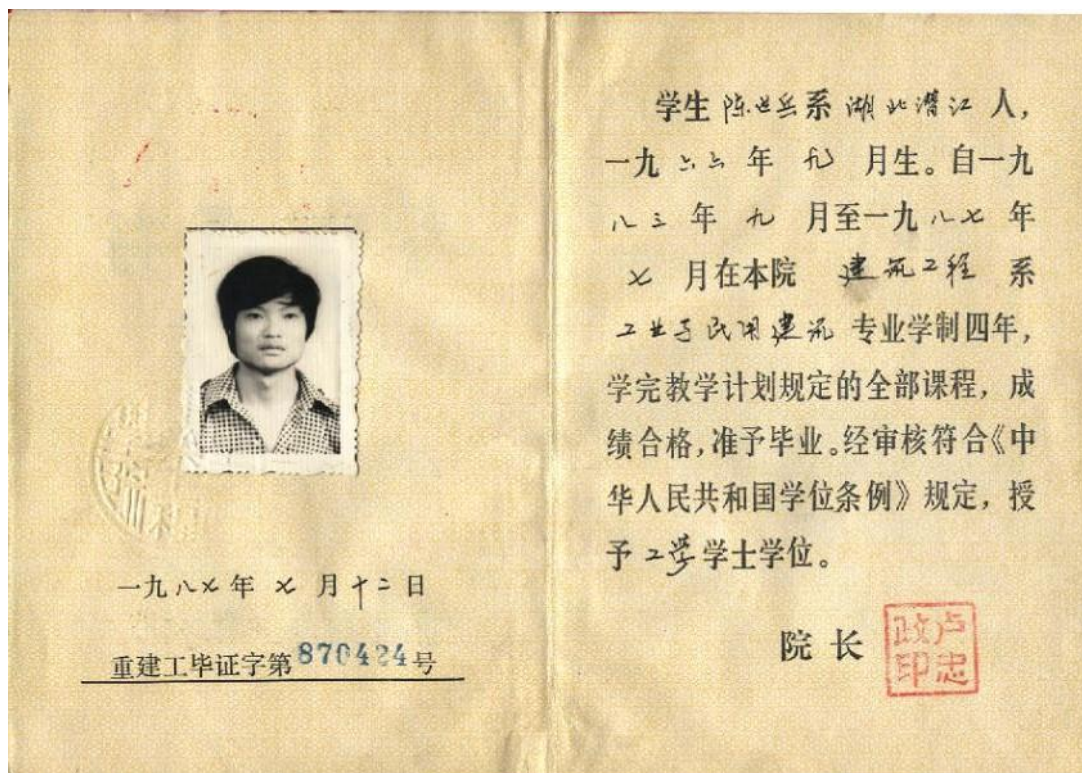 一九八七年七月十二日
重建工毕证字第870424号
学生陈世兵系湖北潜江人，
一九六六年九月生。自一九
八三年九月至一九八七年
七月在本院建筑工程系
工业与民用建筑专业学制四年，
学完教学计划规定的全部课程，成
绩合格，准予毕业。经审核符合《中
华人民共和国学位条例》规定，授
予工学学士学位。
院长
卢忠
政印